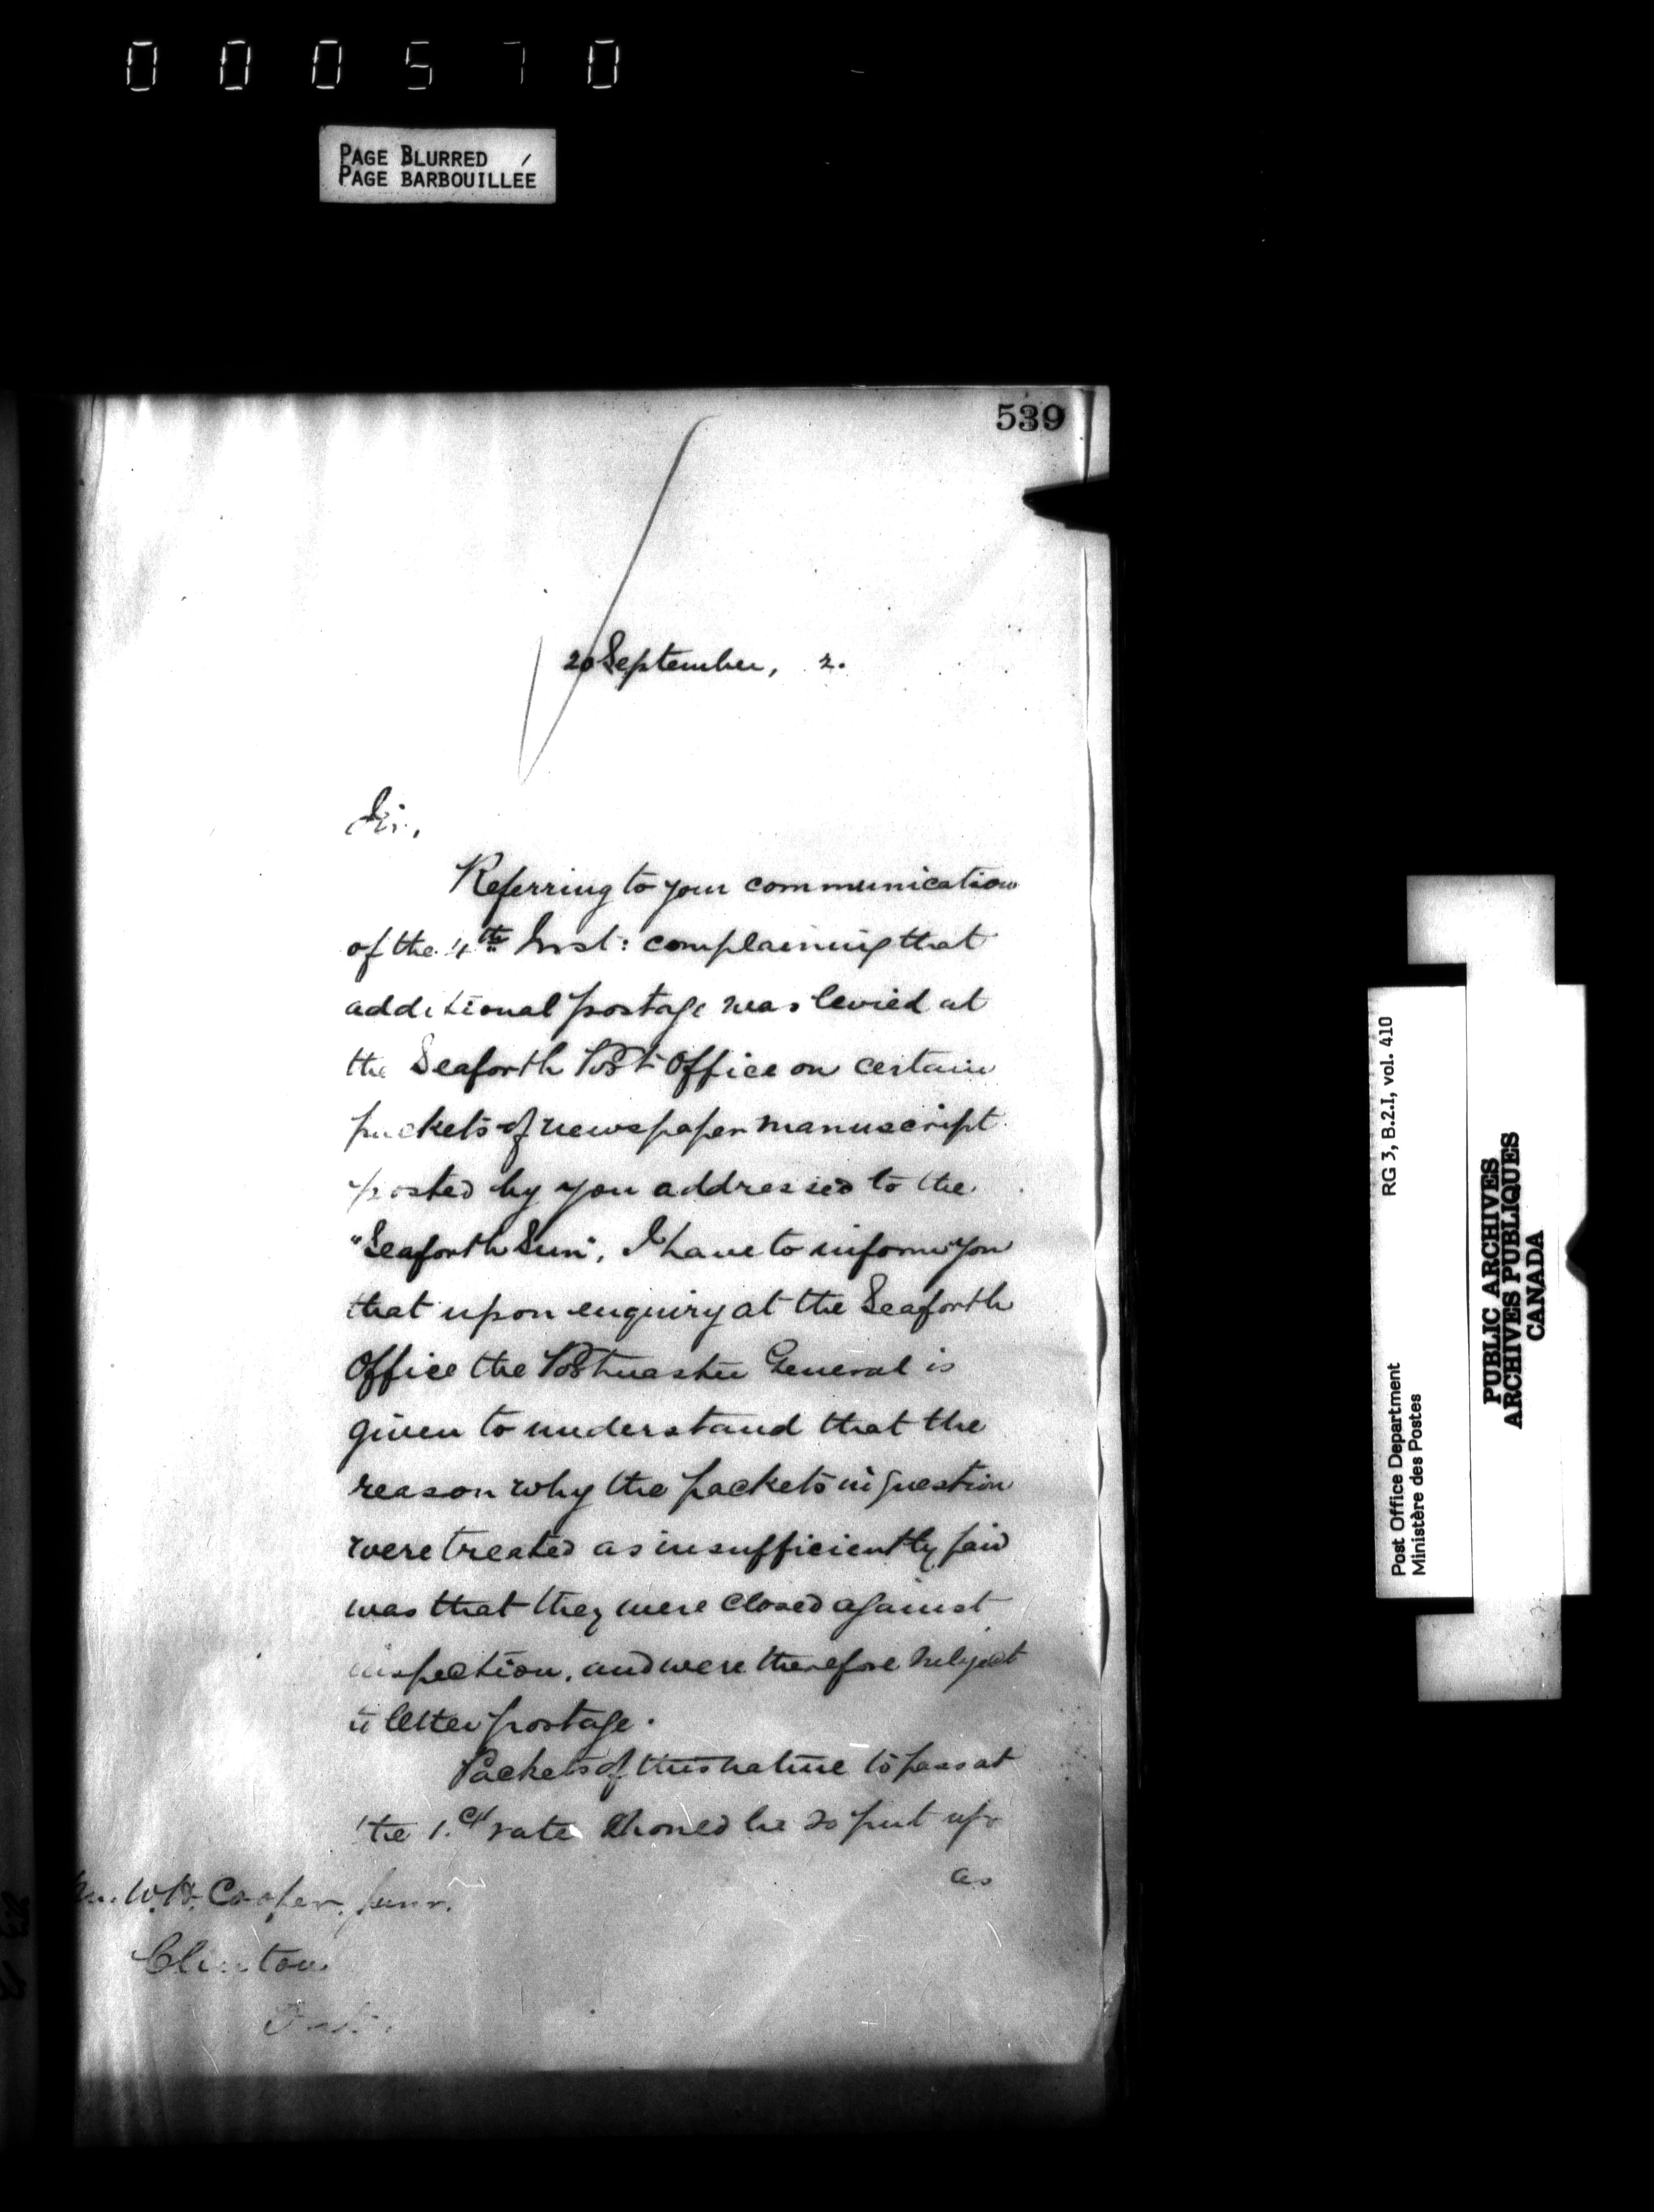 000570
PAGE BLURRED
PAGE BARBOUILLÉE
539
20 September, 2.
Sir,
Referring to your communication
of the 4th Inst: complaining that
additional postage was levied at
the Seaforth Post Office on certain
packets of newspaper manuscript
posted by you addressed to the
"Seaforth Sun", I have to inform you
that upon enquiry at the Seaforth
Office the Postmaster General is
given to understand that the
reason why the packets in question
were treated as insufficiently paid
was that they were closed against
inspection, and were therefore subject
to letter postage.
Packets of this nature to pass at
the 1.ct rate should be so put up
as
W. H. Cooper, Junr.
Clinton
RG 3, B.2.I, vol. 410
Post Office Department
Ministère des Postes
PUBLIC ARCHIVES
ARCHIVES PUBLIQUES
CANADA